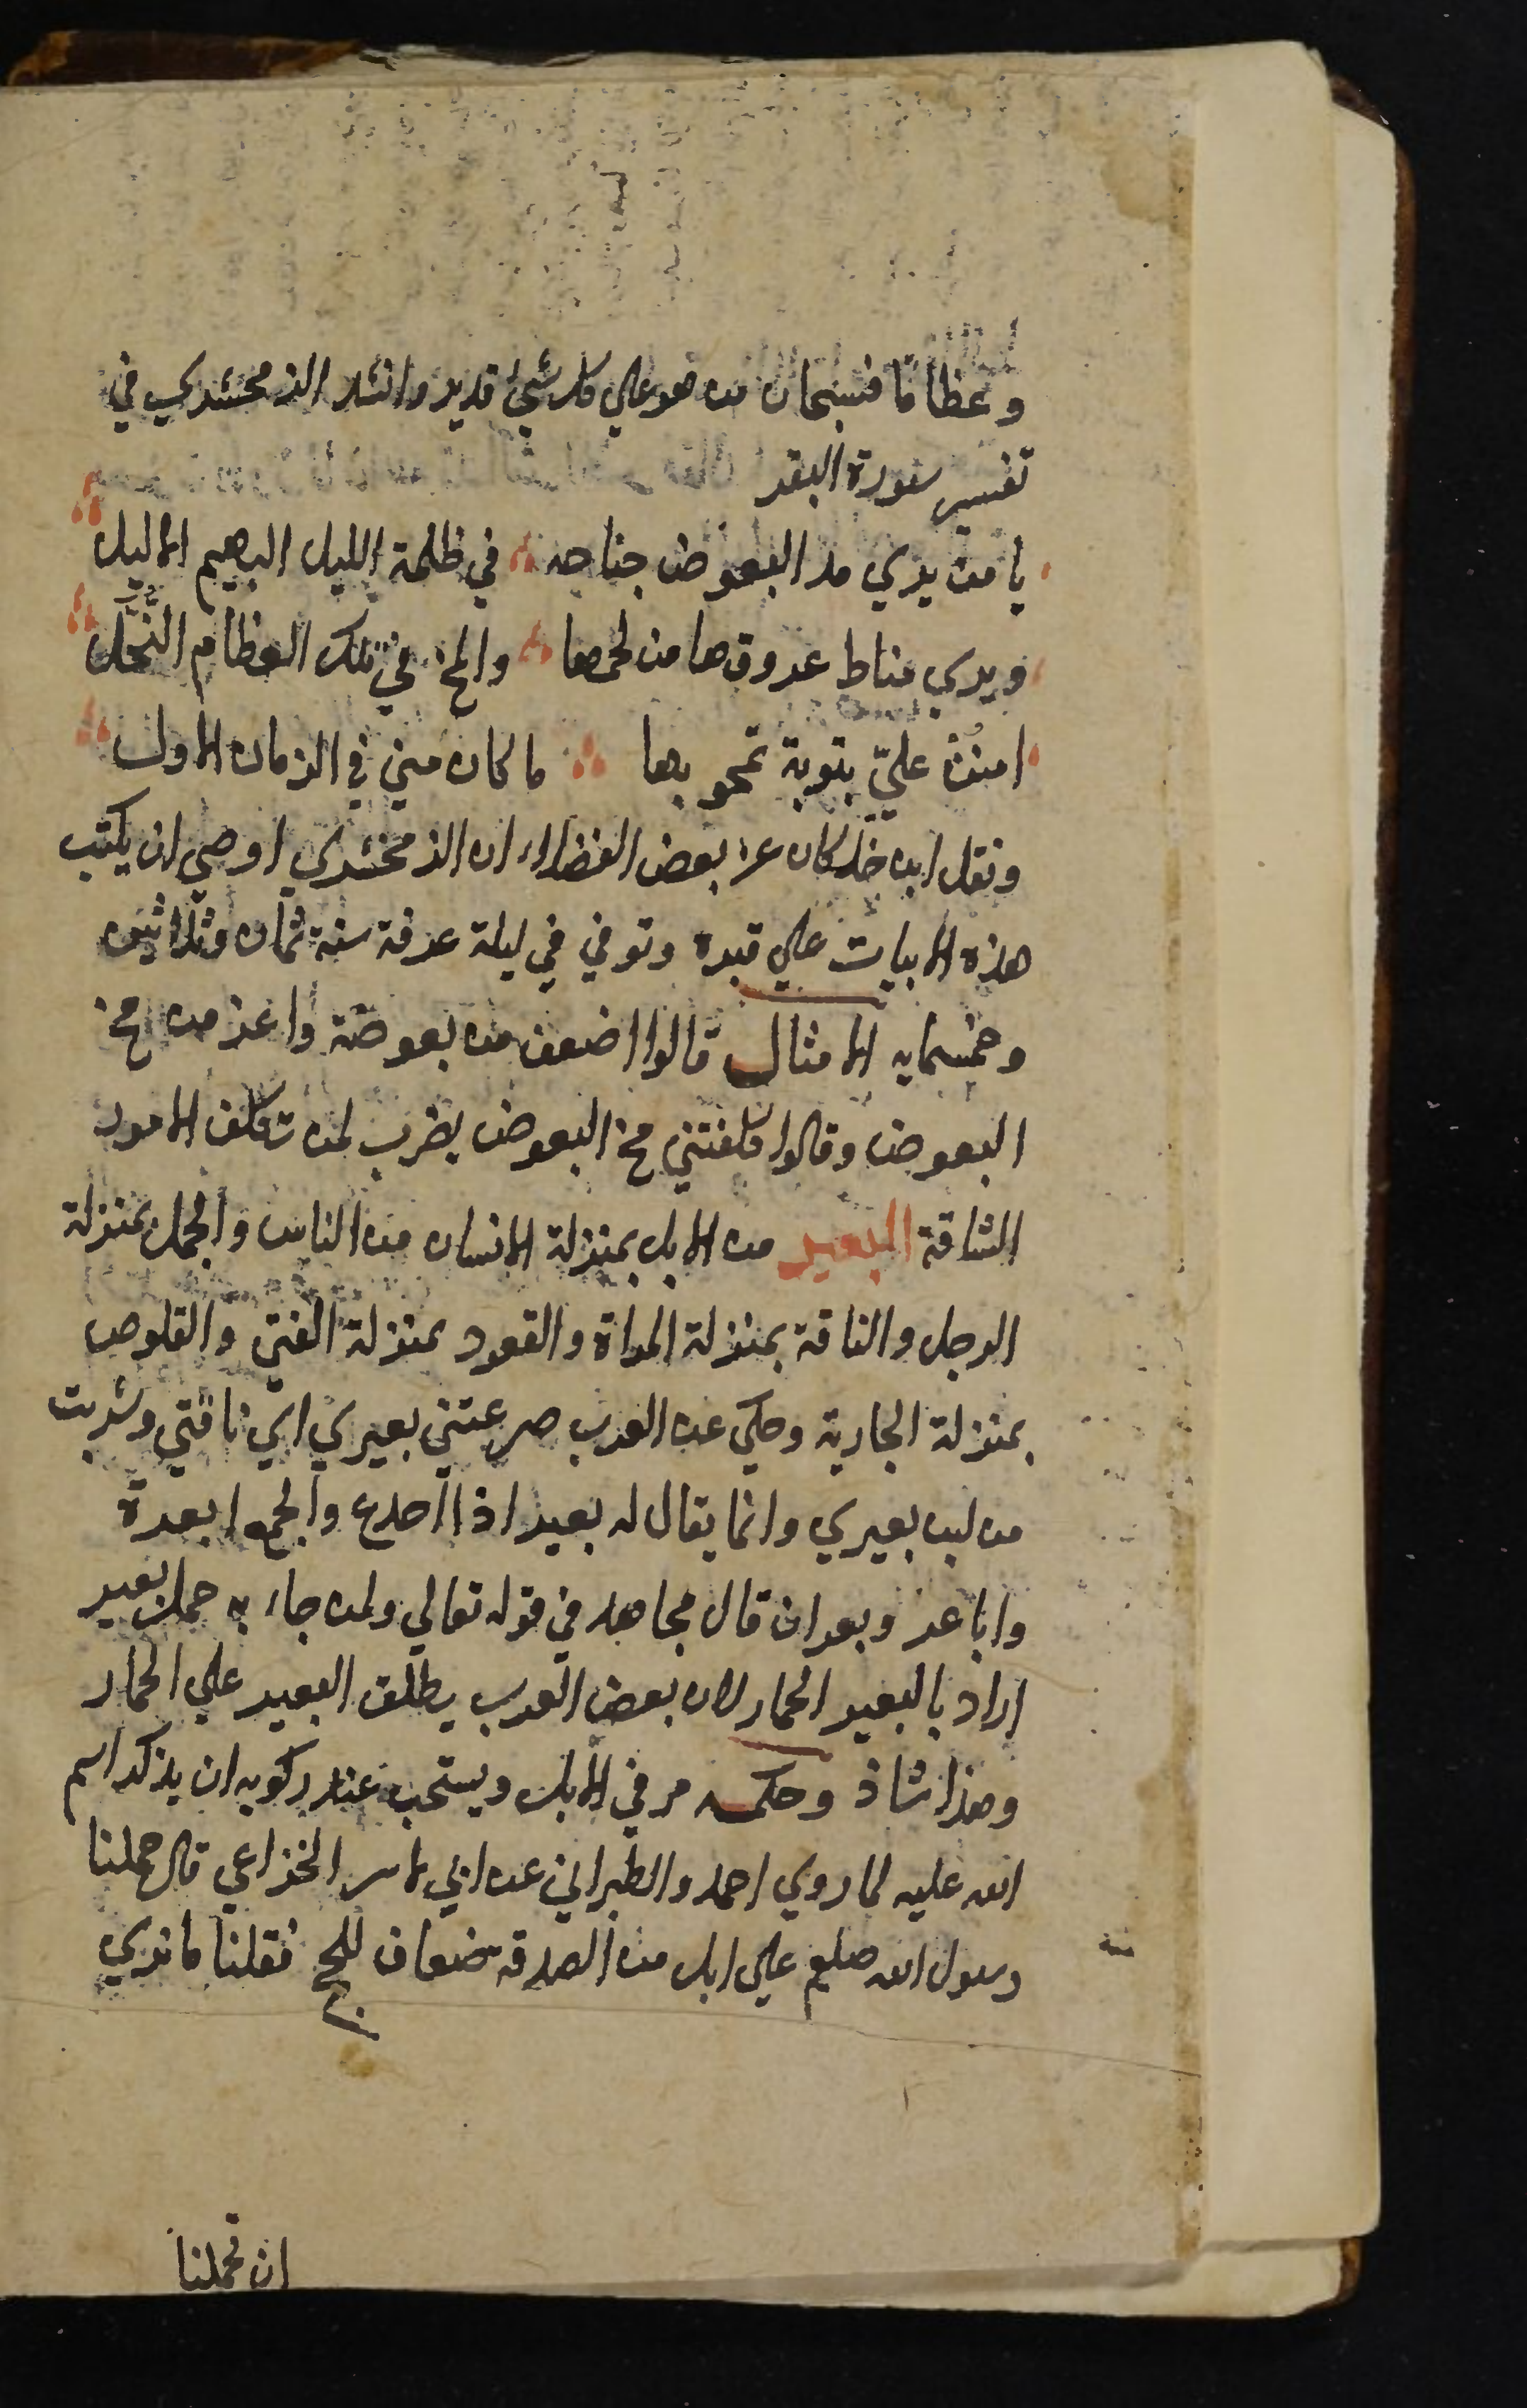 وعظاما فسبحان من هو علي كل شيئ قدير وانشد الزمخشري في
تفسير سورة البقر
يا من يري مد البعوض جناحه في ظلمة الليل البهيم الاليل
ويري مناط عروقها من لحمها والمخ في تلك العظام النحّل
امنن عليّ بتوبة تمحو بها ما كان مني في الزمان الاول
ونقل ابن خلكان عن بعض الفضلاء ان الزمخشري اوصي ان يكتب
هذه الابيات علي قبره وتوفي في ليلة عرفة سنة ثمان وثلاثين
وخمسمايه الامثال قالوا اضعف من بعوضة واعز من مخ
البعوض وقالوا كلفتني مخ البعوض يضرب لمن تكلف الامور
الشاقة البعير من الابل بمنزلة الانسان من الناس والجمل بمنزلة
الرجل والناقة بمنزلة المراة والقعود بمنزلة الفتي والقلوص
بمنزلة الجارية وحكي عن العرب صرعتني بعيري اي ناقتي وشربت
من لبن بعيري وانما يقال له بعير اذا اجدع والجمع ابعرة
واباعر وبعران قال مجاهد في قوله تعالي ولمن جاء به حمل بعير
اراد بالبعير الحمار لان بعض العرب يطلق البعير علي الحمار
وهذا شاذ وحكمه مر في الابل ويستحب عند ركوبه ان يذكر اسم
الله عليه لما روي احمد والطبراني عن ابي لاس الخزاعي قال حملنا
رسول الله صلعم علي ابل من الصدقة ضعاف للحج فقلنا ما نري
ان تحملنا